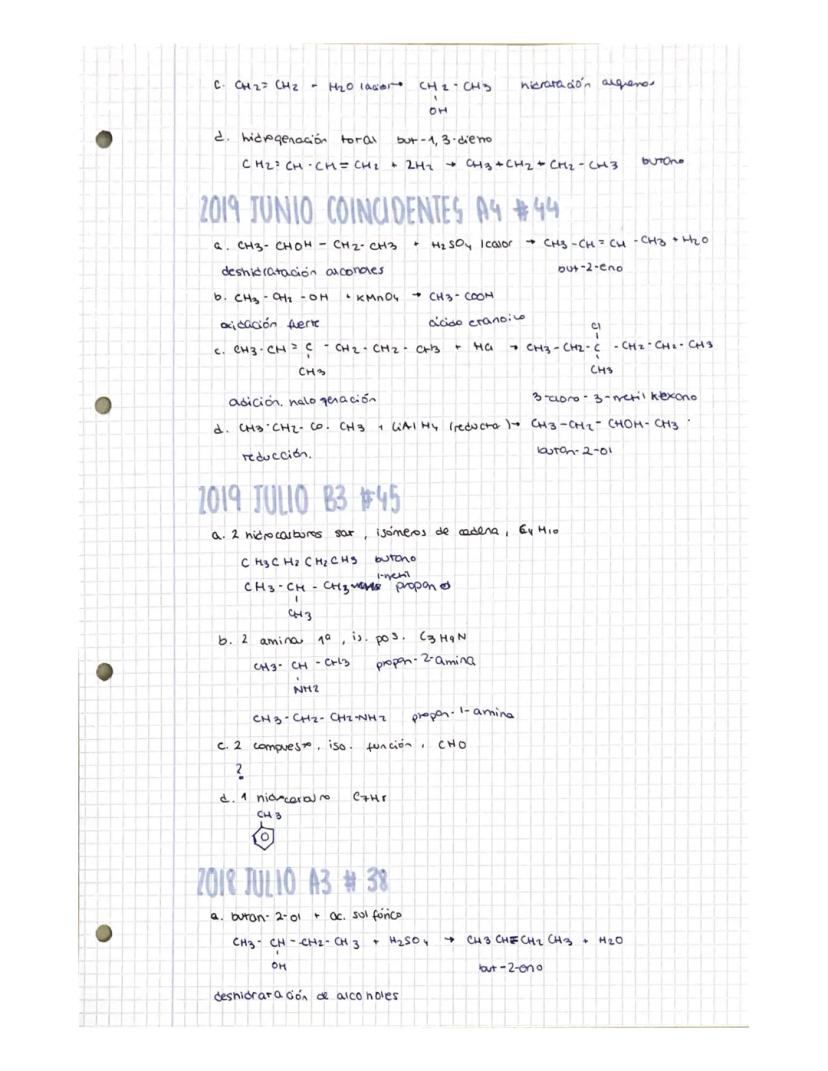 c. CH2=CH2 - H2O /calor → CH2-CH3 hidratación alquenos
OH
d. hidrogenación total but-1,3-dieno
CH2=CH-CH=CH2 + 2H2 → CH3+CH2+CH2-CH3 butano
2019 JUNIO COINCIDENTES A4 #44
a. CH3-CHOH-CH2-CH3 + H2SO4 /calor → CH3-CH=CH-CH3 + H2O
deshidratación alcoholes but-2-eno
b. CH3-CH2-OH + KMnO4 → CH3-COOH
oxidación fuerte ácido etanoico
Cl
c. CH3-CH=C-CH2-CH2-CH3 + HCl → CH3-CH2-C-CH2-CH2-CH3
CH3 CH3
adición. halogenación 3-cloro-3-metil hexano
d. CH3-CH2-CO-CH3 + LiAlH4 (reductor) → CH3-CH2-CHOH-CH3
reducción. butan-2-ol
2019 JULIO B3 #45
a. 2 hidrocarburos sat, isómeros de cadena, C4H10
CH3CH2CH2CH3 butano
1-metil
CH3-CH-CH3 propano
CH3
b. 2 aminas 1º, is. pos. C3H9N
CH3-CH-CH3 propan-2-amina
NH2
CH3-CH2-CH2-NH2 propan-1-amina
c. 2 compuesto, iso. función, CHO
?
d. 1 hidrocarburo C7H8
CH3
2018 JULIO A3 #38
a. butan-2-ol + ác. sulfúrico
CH3-CH-CH2-CH3 + H2SO4 → CH3CH=CH2CH3 + H2O
OH but-2-eno
deshidratación de alcoholes